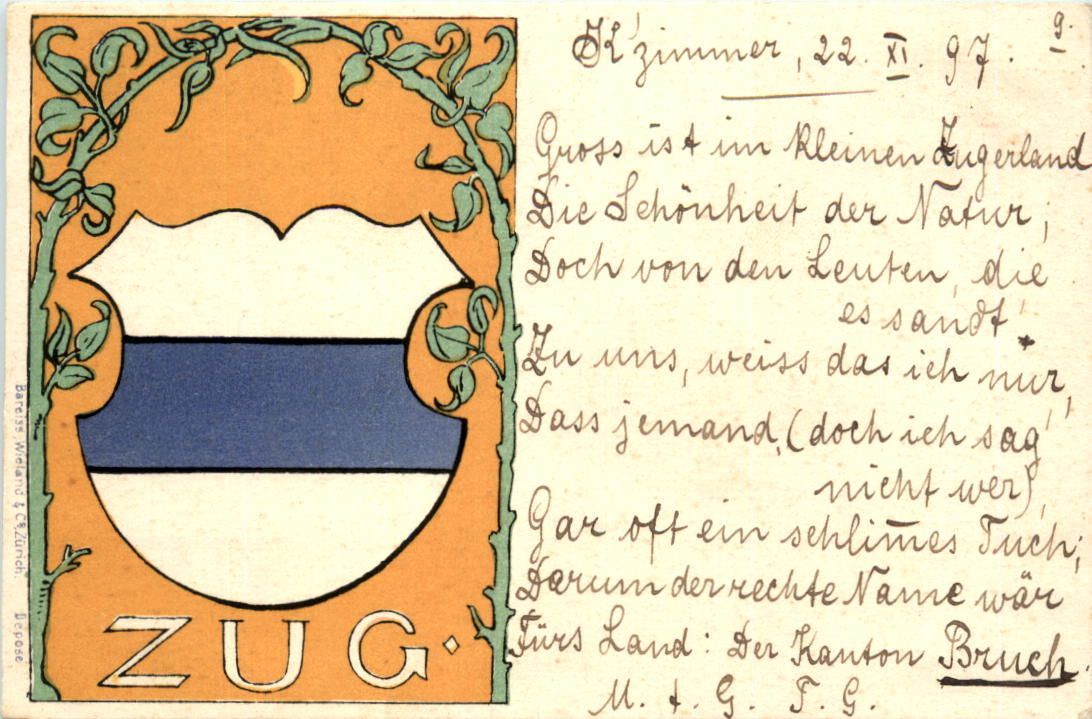 9.
K'zimmer, 22. XI. 97.
Gross ist im kleinen Zugerland
Die Schönheit der Natur;
Doch von den Leuten, die
es sandt'
Zu uns, weiss das ich nur,
Dass jemand, (doch ich sag'
nicht wer),
Gar oft ein schlim̅es Tuch;
Darum der rechte Name wär
Fürs Land: Der Kanton Bruch.
M. f. G. F. G.
ZUG.
Bareiss, Wieland & Co, Zürich. Déposé